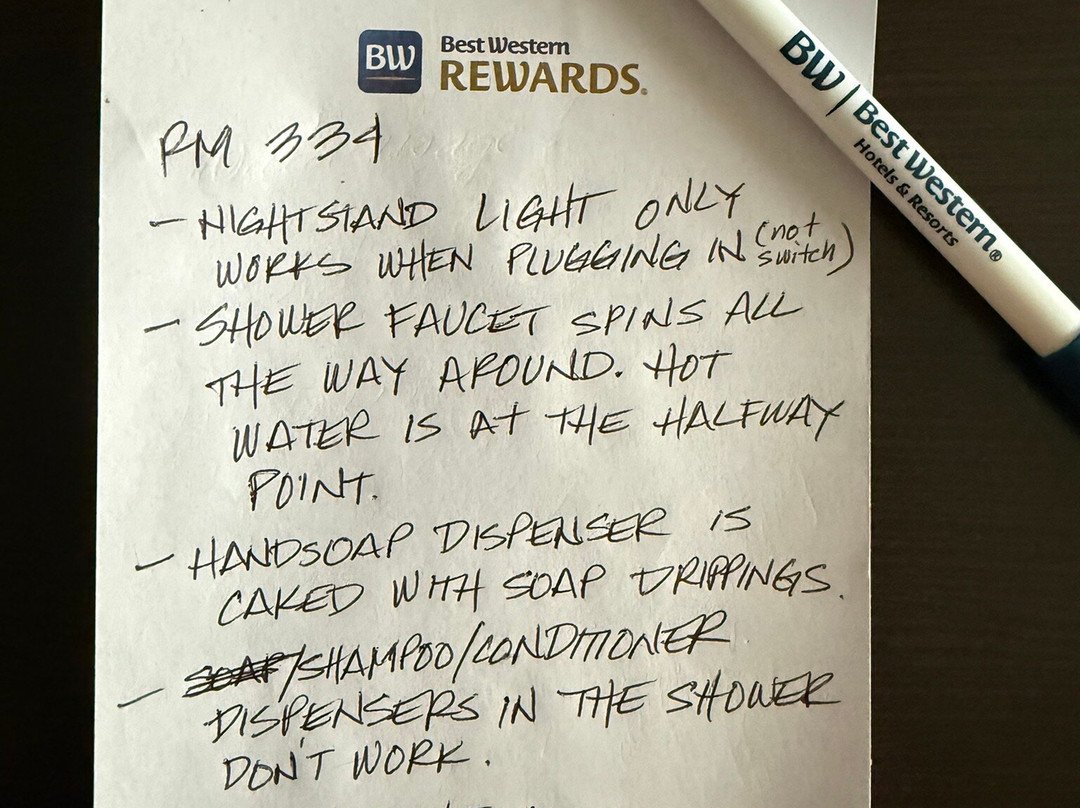 BW Best Western
REWARDS.
BW | Best Western®
Hotels & Resorts
RM 334
- NIGHTSTAND LIGHT ONLY
WORKS WHEN PLUGGING IN (not switch)
- SHOWER FAUCET SPINS ALL
THE WAY AROUND. HOT
WATER IS AT THE HALFWAY
POINT.
- HANDSOAP DISPENSER IS
CAKED WITH SOAP DRIPPINGS.
- SOAP/SHAMPOO/CONDITIONER
DISPENSERS IN THE SHOWER
DON'T WORK.